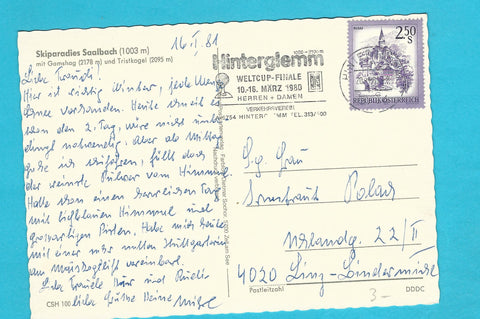 Skiparadies Saalbach (1003 m)
mit Gamshag (2178 m) und Tristkogel (2095 m)
16.I.81
Liebe Traudi!
Hier ist richtig Winter, jede Menge
Schnee vorhanden. Heute schneit es
schon den 2. Tag, wäre nicht unbe-
dingt notwendig. Aber ab Mittag
gehe ich schifahren, fällt doch
der weiße Pulver vom Himmel.
Hatte schon einen herrlichen Tag
mit tiefblauem Himmel und
großartigen Pisten. Habe mich heute
mit einer sehr netten Stuttgarterin
am vereinbart.
Liebe Grüße Deine
Hinterglemm
1050 - 2100 m
WELTCUP-FINALE
10.-16. MÄRZ 1980
HERREN + DAMEN
VERKEHRSVEREIN
5754 HINTERGLEMM TEL.
2.50
S
REPUBLIK ÖSTERREICH
S.g. Frau
Polach
22/II
4020 Linz-
Postleitzahl
CSH 100
DDDC
3-